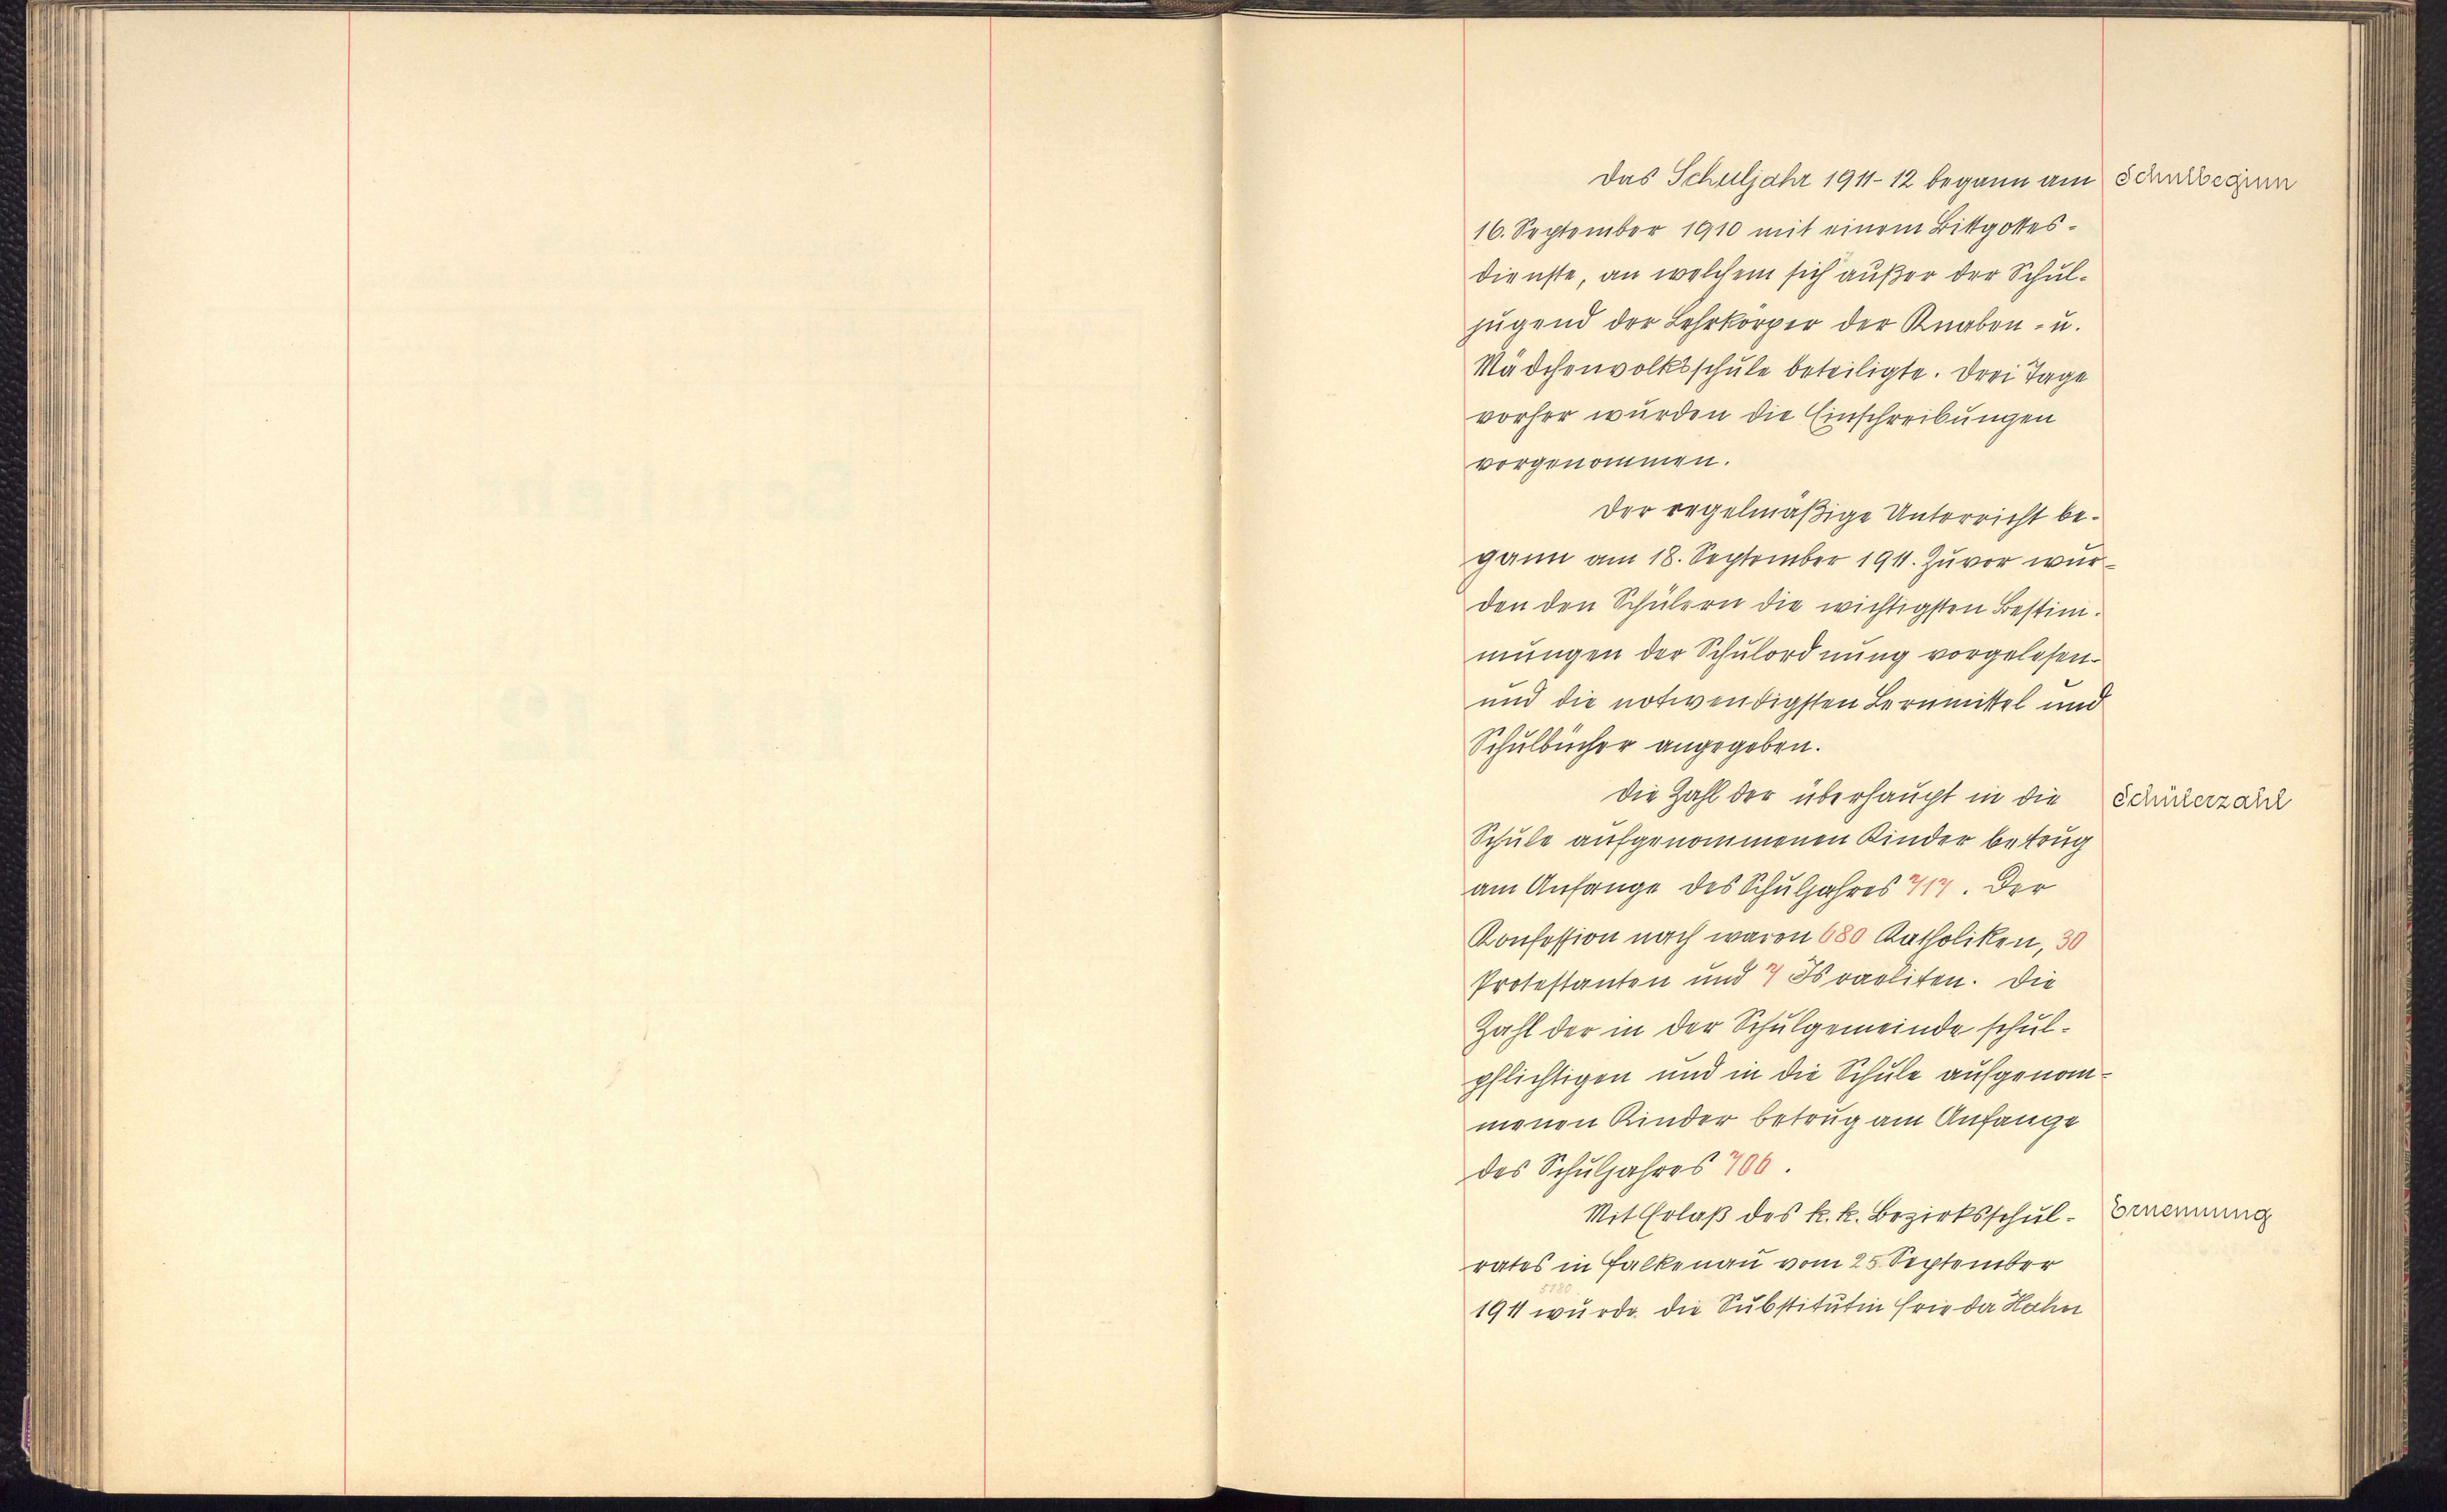 Das Schuljahr 1911-12 begann am Schulbeginn
16. September 1910 mit einem Bittgottes-
dienste, an welchem sich außer der Schul-
jugend der Lehrkörper der Knaben- u.
Mädchenvolksschule beteiligte. Drei Tage
vorher wurden die Einschreibungen
vorgenommen.
Der regelmäßige Unterricht be-
gann am 18. September 1911. Zuvor wur-
den den Schülern die wichtigsten Bestim-
mungen der Schulordnung vorgelesen
und die notwendigsten Lernmittel und
Schulbücher angegeben.
Die Zahl der überhaupt in die Schülerzahl
Schule aufgenommenen Kinder betrug
am Anfange des Schuljahres 717. Der
Konfession nach waren 680 Katholiken, 30
Protestanten und 7 Israeliten. Die
Zahl der in der Schulgemeinde schul-
pflichtigen und in die Schule aufgenom-
menen Kinder betrug am Anfange
des Schuljahres 706.
Mit Erlaß des k. k. Bezirksschul- Ernennung
rates in Falkenau vom 25. September
5980
1911 wurde die Substitutin Frieda Hahn